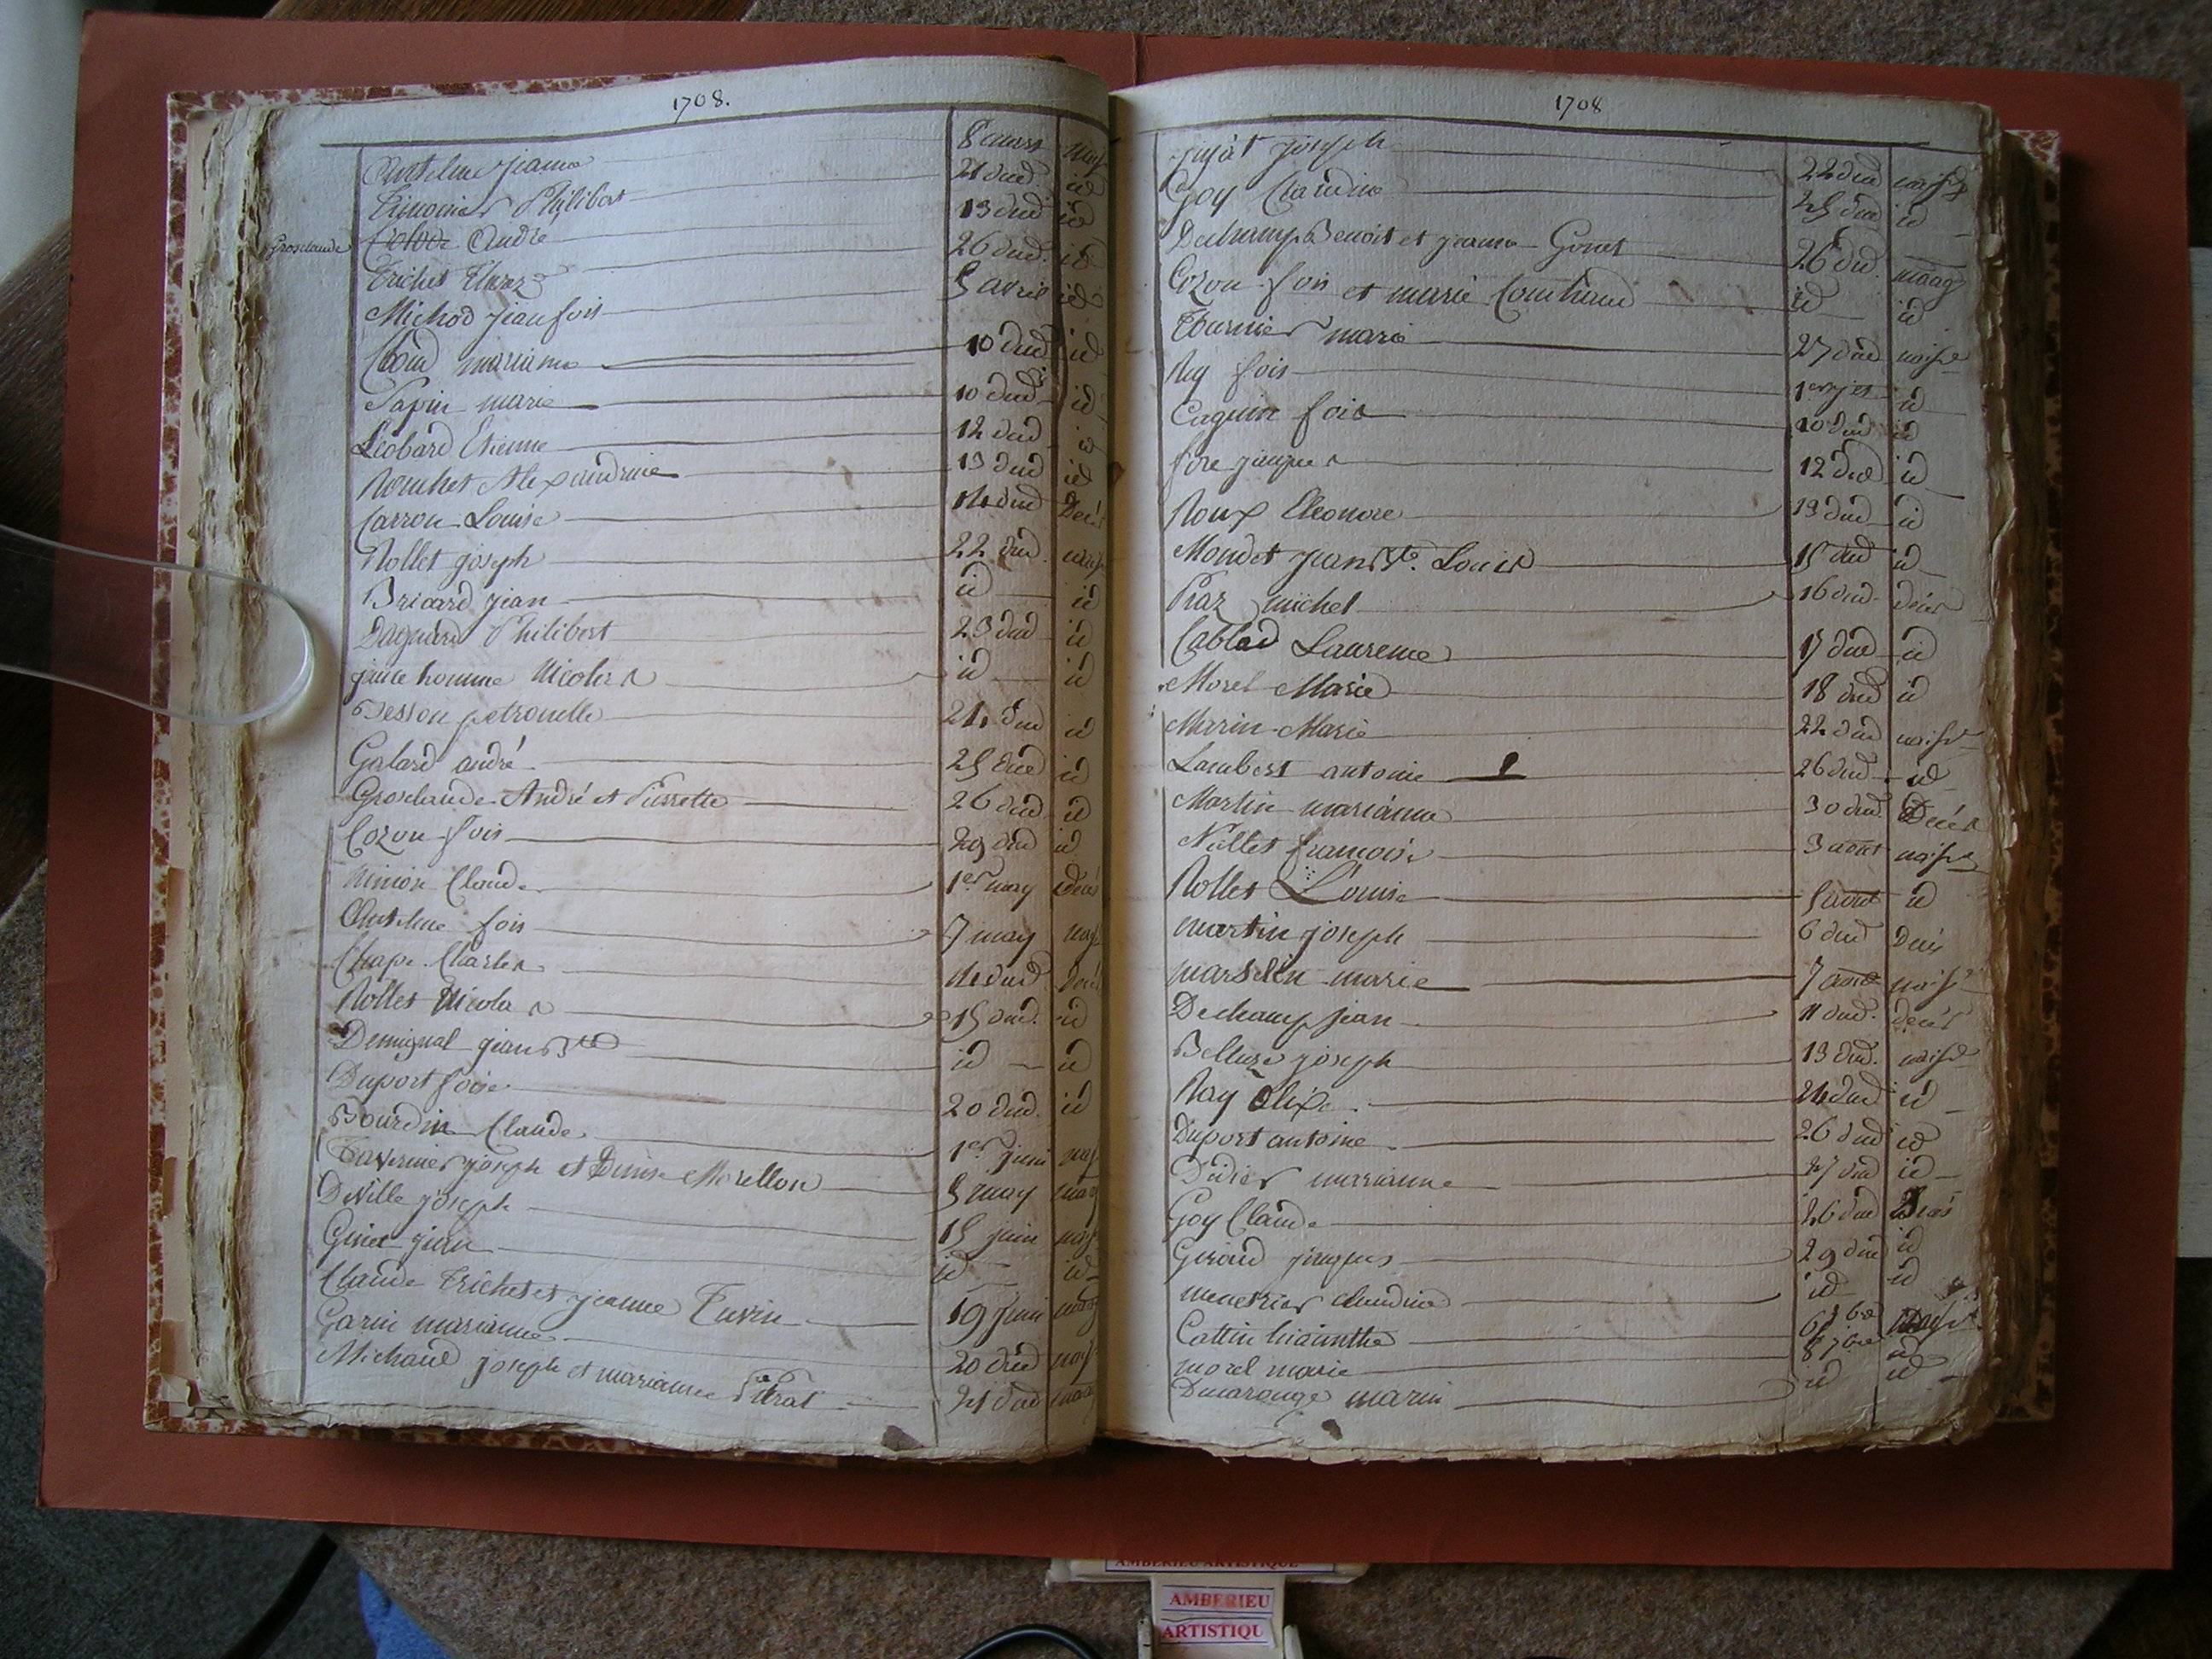 1708.
Antelme jeanne 8 mars nais
Timonier Philibert 21 dud. id
Groslaude André 13 dud id
Trichet 26 dud. id
Michod jean fois 5 avril id
Cloud marianne 10 dud id
Papin marie 10 dud id
Léobard Etienne 12 dud id
Rouchet Alexandrine 13 dud id
Carron Louise 14 dud Decès
Rollet joseph 22 dud. nais
Bricard jean id id
Dagniere Philibert 23 dud id
jeune homme Nicolas id id
Besson petronelle 24 dud id
Galard andré 25 dud id
Groslaude André et Pierrette 26 dud id
Cozon fois 29 dud id
Minion Claude 1er may decès
Antelme fois 7 may nais
Chape Charles 14 dud. decès
Rollet Nicolas 15 dud. id
Demignal jean Bte id id
Duport foise 20 dud. id
Bourdin Claude 1er juin nais
Tavernier joseph et Denise Morellon 5 may mag
DeVille joseph 15 juin nais
Ginet jean id id
Claude Trichet et jeanne Tuvin 19 juin mag
Garin marianne 20 dud nais
Michaud joseph et marianne Pitrat 21 dud mag
1708
jujat joseph 22 dud naise
Goy Claudine 25 dud id
Dechamp Benoit et jeanne Gonet 26 dud. maag
Cozon fois et marie id id
Tournier marie 27 dud naise
Rey fois 1er id
Caguin fois 10 dud id
fore jacques 12 dud id
Roux Eleonore 13 dud id
Mondet jean Bte. Louis 15 dud id
Piaz michel 16 dud. decès
Cablad Laurence 17 dud id
Morel Marie 18 dud id
Marin Marie 22 dud naise
Lambert antoine 26 dud id
Martin marianne 30 dud. Decès
Nallet françoise 3 aout naise
Rollet Louise 5 aout id
martin joseph 6 dud Decès
marselin marie 7 aout naise
Dechamp jean 11 dud. decès
Belluze joseph 13 dud. naise
Ray Alixe 24 dud id
Duport antoine 26 dud id
Didier marianne 27 dud id
Goy Claude 26 dud Decès
Geraud jacques 29 dud id
menetrier claudine id id
Cattin hiacinthe 6 7bre
morel marie 8 7bre id
Dumarouge marin id id
AMBERIEU ARTISTIQUE
AMBERIEU
ARTISTIQU